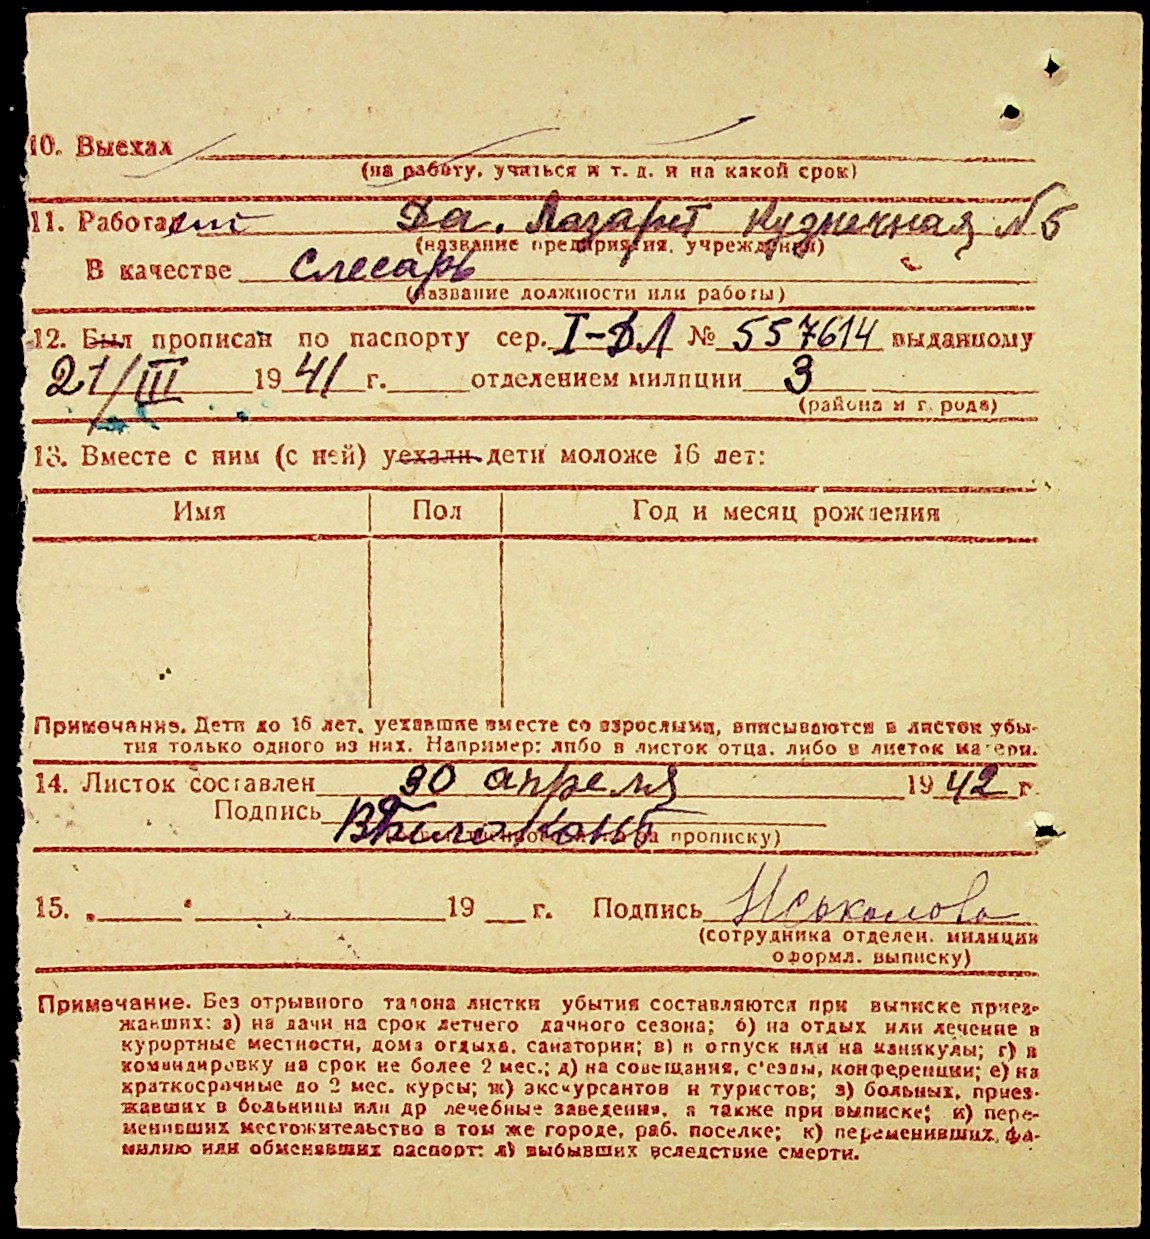 10. Выехал
(на работу, учиться и т. д. и на какой срок)
11. Работает Да. Лазарет Кузнечная № 5
(название предприятия, учреждения)
В качестве Слесарь
(название должности или работы)
12. Был прописан по паспорту сер. I-ДЛ № 557614 выданному
21/III 1941 г. отделением милиции 3
(района и города)
13. Вместе с ним (с ней) уехали дети моложе 16 лет:
Имя Пол Год и месяц рождения
Примечание. Дети до 16 лет, уехавшие вместе со взрослыми, вписываются в листок убы-
тия только одного из них. Например: либо в листок отца, либо в листок матери.
14. Листок составлен 30 апреля 1942 г.
Подпись
за прописку)
15. 19 г. Подпись
(сотрудника отделен. милиции
оформл. выписку)
Примечание. Без отрывного талона листки убытия составляются при выписке приез-
жавших: а) на дачи на срок летнего дачного сезона; б) на отдых или лечение в
курортные местности, дома отдыха, санатории; в) в отпуск или на каникулы; г) в
командировку на срок не более 2 мес.; д) на совещания, с'езды, конференции; е) на
краткосрочные до 2 мес. курсы; ж) экскурсантов и туристов; з) больных, приез-
жавших в больницы или др лечебные заведения, а также при выписке; и) пере-
менивших местожительство в том же городе, раб. поселке; к) переменивших фа-
милию или обменявших паспорт; л) выбывших вследствие смерти.